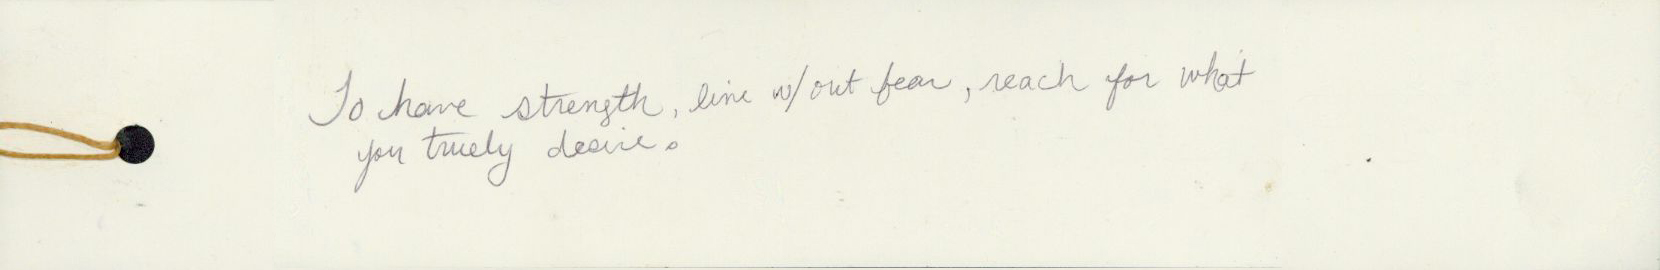 To have strength, live w/out fear, reach for what
you truely desire.